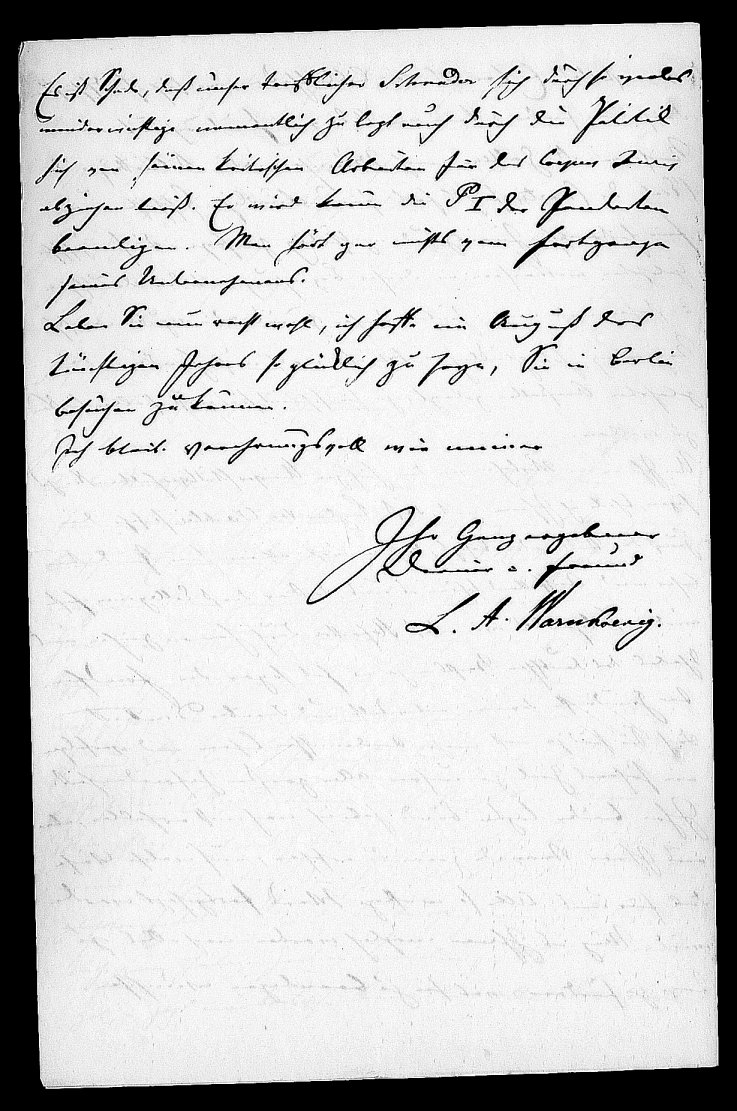 Es ist Schade, daß unser trefflicher Schrader sich durch so vieles
minder wichtige namentlich zu letzt auch durch die Politik
sich von seinen kritischen Arbeiten für das Corpus Juris
abziehen ließ. Er wird kaum die P I der Pandecten
beendigen. Man hört gar nichts vom Fortgange
seines Unternehmens.
Leben Sie nun recht wohl, ich hoffe im August des
künftigen Jahres so glücklich zu seyn, Sie in Berlin
besuchen zu können.
Ich bleibe verehrungsvoll wie immer
Ihr Ganz ergebener
Diener u. Freund
L. A. Warnkoenig.